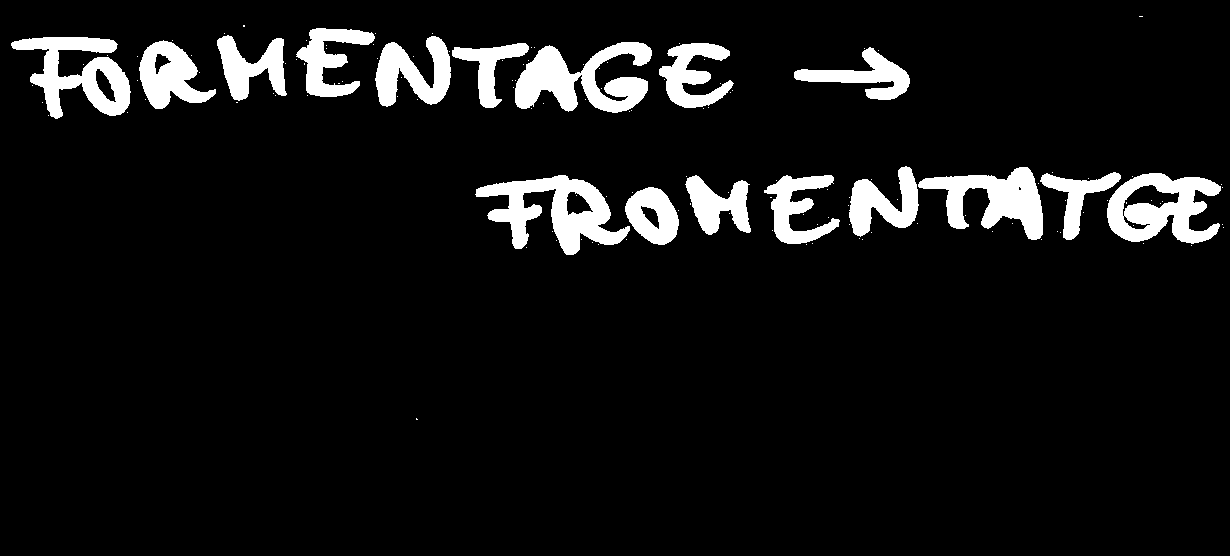 FORMENTAGE →
FROMENTATGE